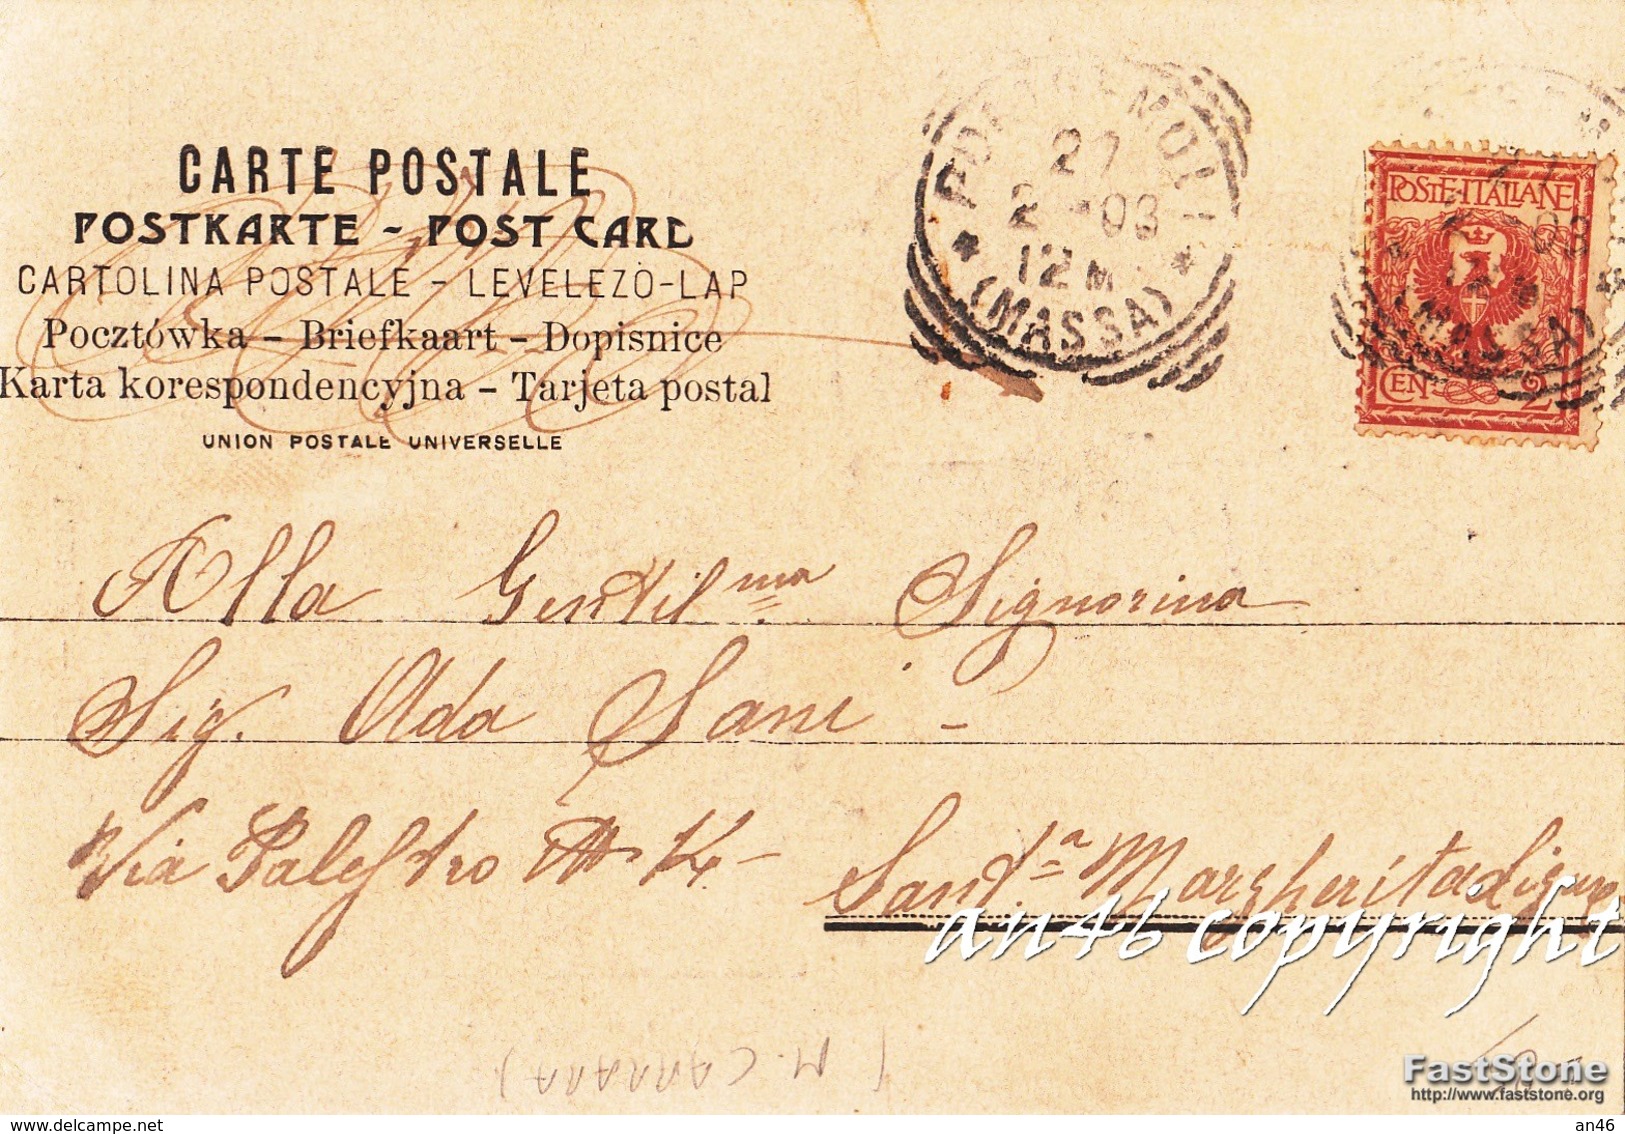 CARTE POSTALE
POSTKARTE - POST CARD
CARTOLINA POSTALE - LEVELEZŐ-LAP
Pocztówka - Briefkaart - Dopisnice
Karta korespondencyjna - Tarjeta postal
UNION POSTALE UNIVERSELLE
PONTREMOLI
27
2-03
12 M
(MASSA)
POSTE·ITALIANE
CEN 2
03
(MASSA)
Alla Gentil.ma Signorina
Sig. Ada Sani -
Via Palestro
Sant.a Margherita Ligure
an46 copyright
(M. CARRARA)
FastStone
http://www.faststone.org
delcampe.net
an46